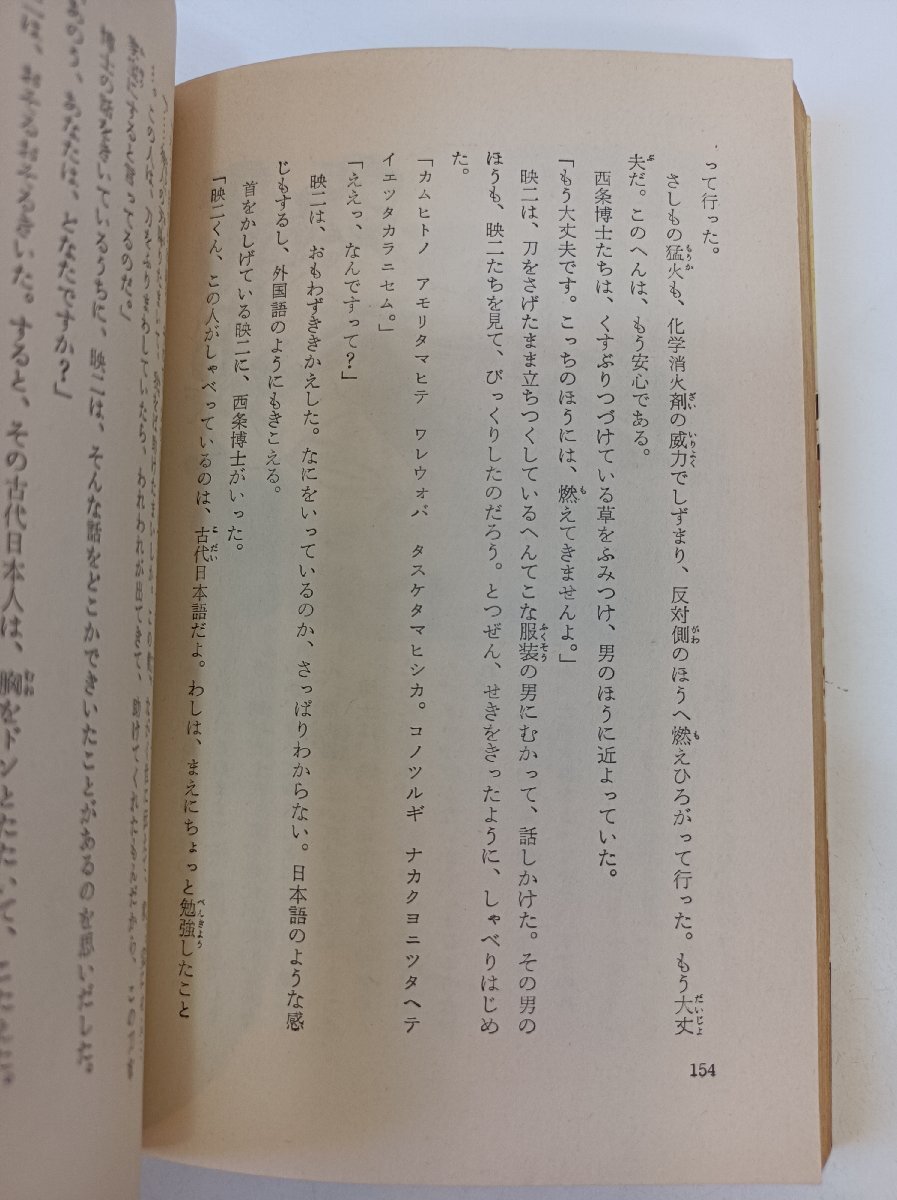 って行った。
さしもの猛火も、化学消火剤の威力でしずまり、反対側のほうへ燃えひろがって行った。もう大丈
夫だ。このへんは、もう安心である。
西条博士たちは、くすぶりつづけている草をふみつけ、男のほうに近よっていた。
「もう大丈夫です。こっちのほうには、燃えてきませんよ。」
映二は、刀をさげたまま立ちつくしているへんてこな服装の男にむかって、話しかけた。その男の
ほうも、映二たちを見て、びっくりしたのだろう。とつぜん、せきをきったように、しゃべりはじめ
た。
「カムヒトノ アモリタマヒテ ワレウォバ タスケタマヒシカ。コノツルギ ナカクヨニツタヘテ
イエツタカラニセム。」
「ええっ、なんですって？」
映二は、おもわずききかえした。なにをいっているのか、さっぱりわからない。日本語のような感
じもするし、外国語のようにもきこえる。
首をかしげている映二に、西条博士がいった。
「映二くん、この人がしゃべっているのは、古代日本語だよ。わしは、まえにちょっと勉強したこと
154
この人は、刀をふりまわしていたら、われわれが出てきて、助けてくれたもんだから、この
にするといってるのだ。」
博士の話をきいているうちに、映二は、そんな話をどこかできいたことがあるのを思いだした。
あのう、あなたは、どなたですか？」
は、おそるおそるきいた。すると、その古代日本人は、胸をドンとたたいて、こたえた。